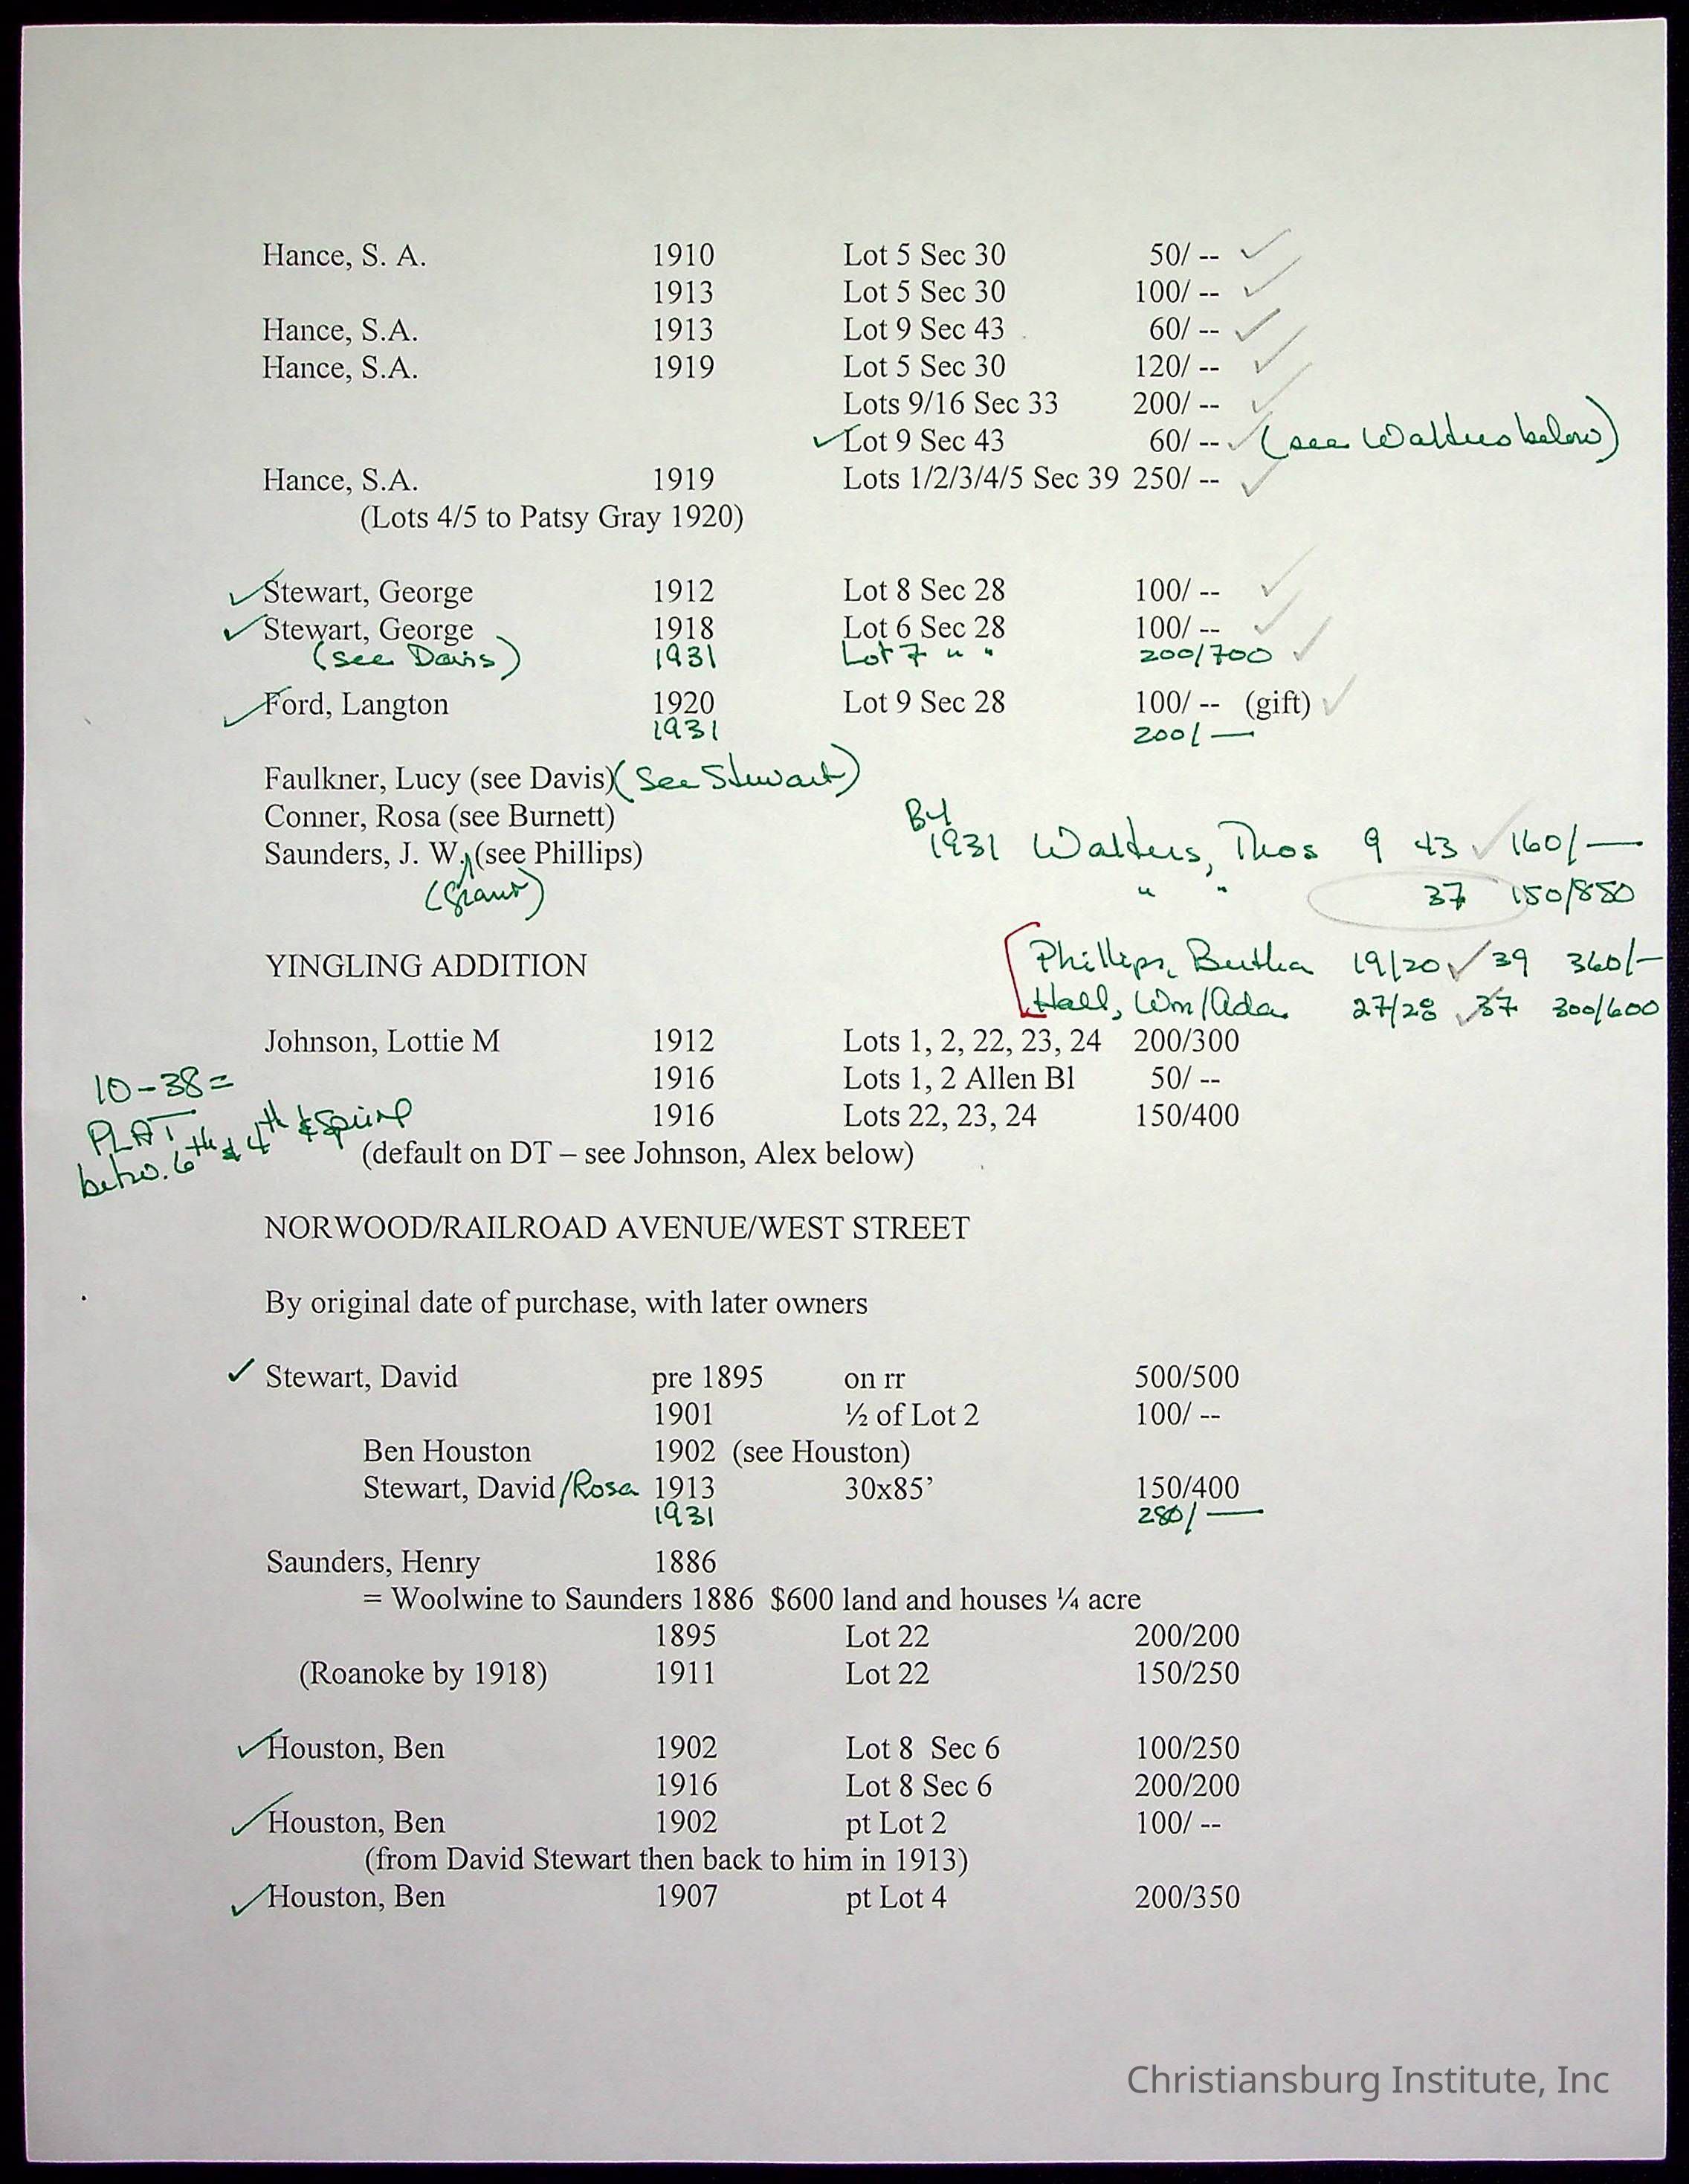 Hance, S. A. 1910 Lot 5 Sec 30 50/ -- ✓
1913 Lot 5 Sec 30 100/ -- ✓
Hance, S.A. 1913 Lot 9 Sec 43 60/ -- ✓
Hance, S.A. 1919 Lot 5 Sec 30 120/ -- ✓
Lots 9/16 Sec 33 200/ -- ✓
✓ Lot 9 Sec 43 60/ -- ✓ (see Walters below)
Hance, S.A. 1919 Lots 1/2/3/4/5 Sec 39 250/ -- ✓
(Lots 4/5 to Patsy Gray 1920)
✓ Stewart, George 1912 Lot 8 Sec 28 100/ -- ✓
✓ Stewart, George 1918 Lot 6 Sec 28 100/ -- ✓
(see Davis) 1931 Lot 7 " " 200/700 ✓
✓ Ford, Langton 1920 Lot 9 Sec 28 100/ -- (gift) ✓
1931 200/ —
Faulkner, Lucy (see Davis) (see Stewart)
Conner, Rosa (see Burnett)
Saunders, J. W. (see Phillips)
(Grant)
By
1931 Walters, Thos 9 43 ✓ 160/ —
" " 37 150/850
Phillips, Bertha 19/20 ✓ 39 360/—
Hall, Wm/Ada 27/28 ✓ 37 300/600
YINGLING ADDITION
Johnson, Lottie M 1912 Lots 1, 2, 22, 23, 24 200/300
1916 Lots 1, 2 Allen Bl 50/ --
1916 Lots 22, 23, 24 150/400
(default on DT – see Johnson, Alex below)
10-38=
PLAT
betw. 6th & 4th
NORWOOD/RAILROAD AVENUE/WEST STREET
By original date of purchase, with later owners
✓ Stewart, David pre 1895 on rr 500/500
1901 ½ of Lot 2 100/ --
Ben Houston 1902 (see Houston)
Stewart, David/Rosa 1913 30x85’ 150/400
1931 280/ —
Saunders, Henry 1886
= Woolwine to Saunders 1886 $600 land and houses ¼ acre
1895 Lot 22 200/200
(Roanoke by 1918) 1911 Lot 22 150/250
✓ Houston, Ben 1902 Lot 8 Sec 6 100/250
1916 Lot 8 Sec 6 200/200
✓ Houston, Ben 1902 pt Lot 2 100/ --
(from David Stewart then back to him in 1913)
✓ Houston, Ben 1907 pt Lot 4 200/350
Christiansburg Institute, Inc